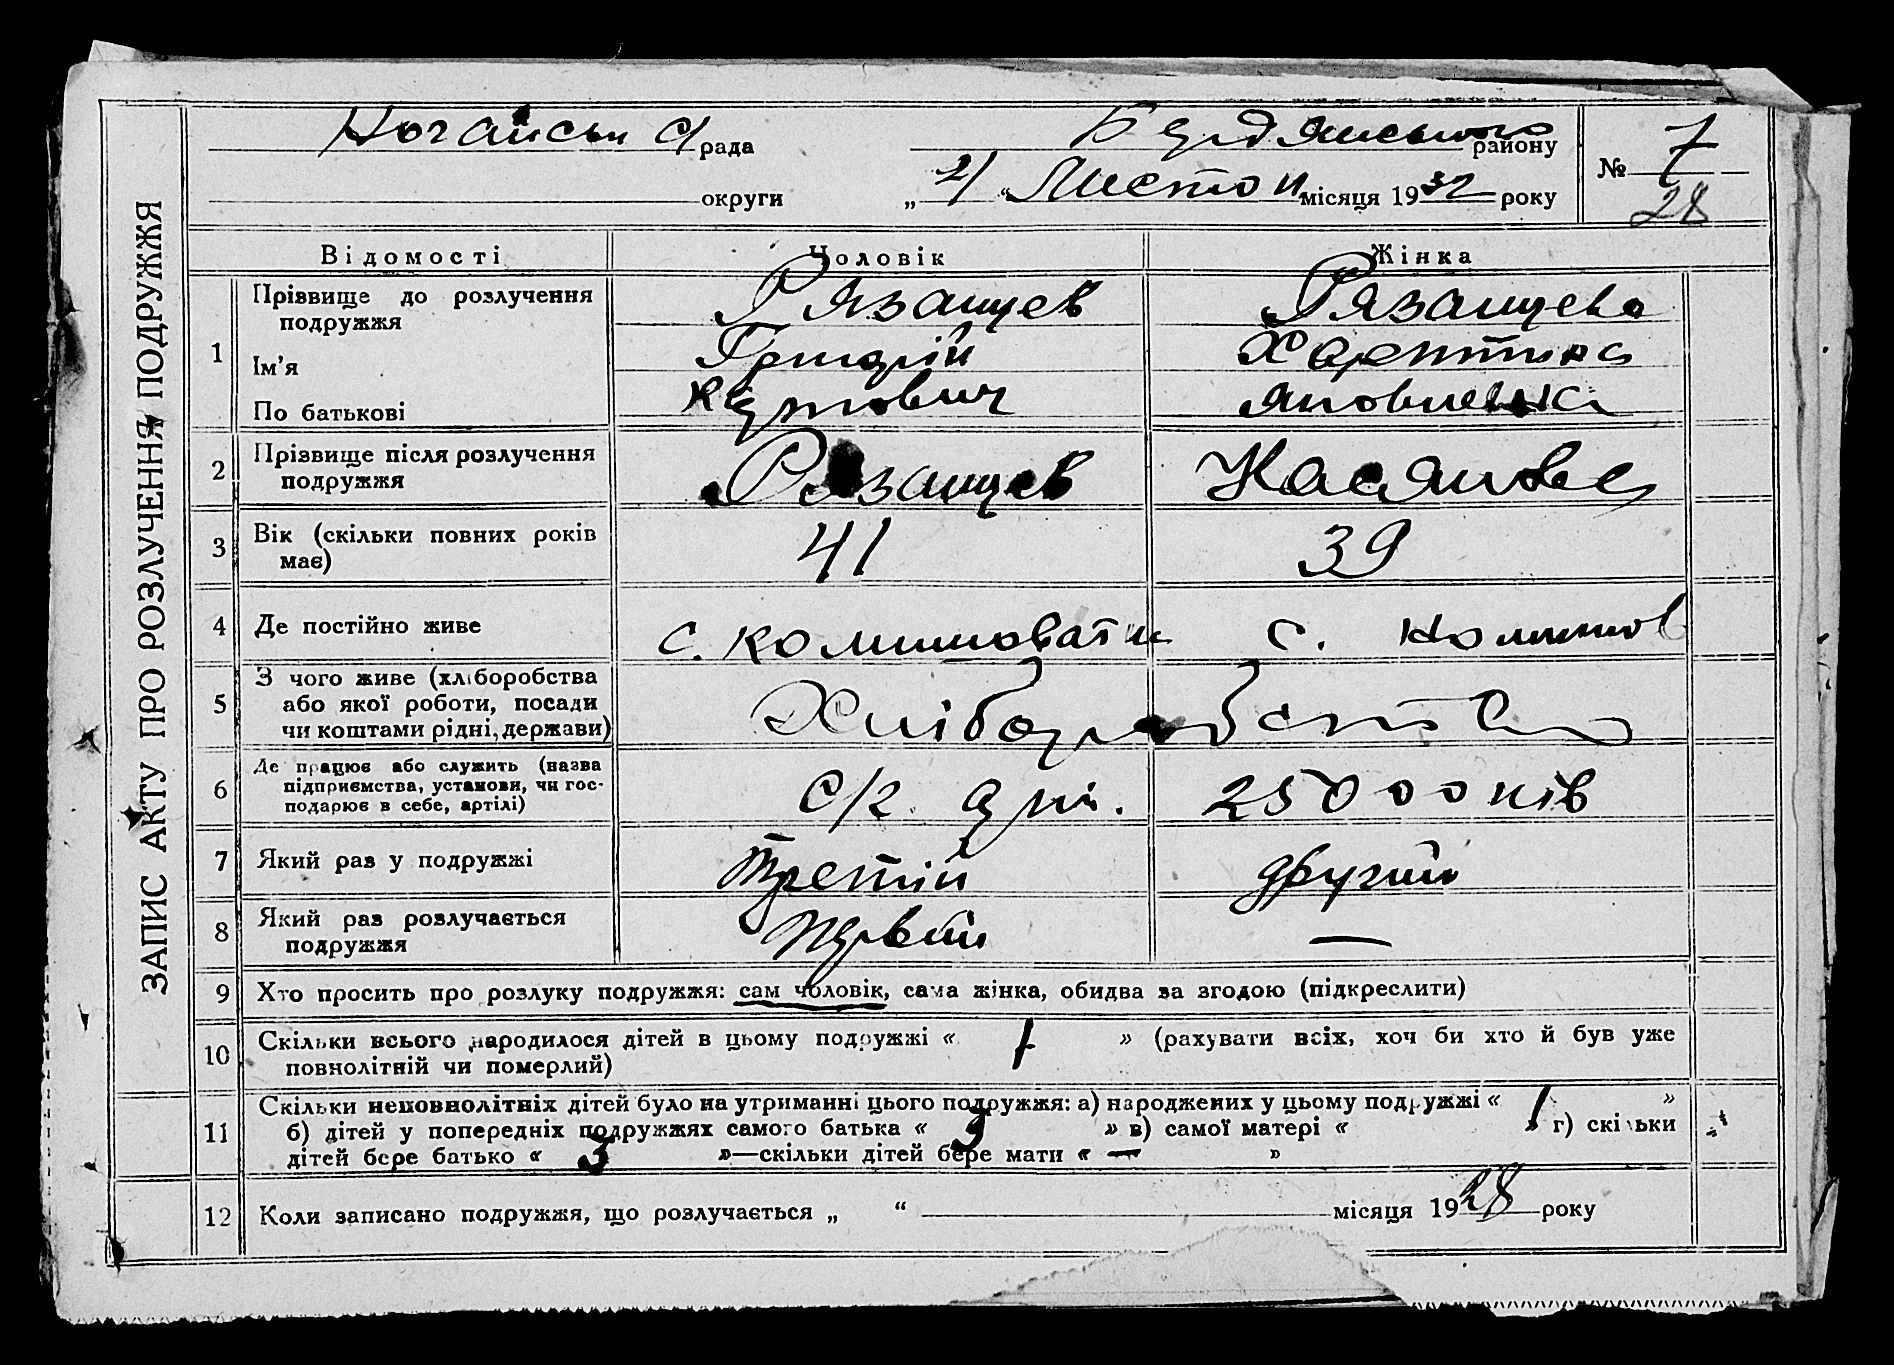 ЗАПИС АКТУ ПРО РОЗЛУЧЕННЯ ПОДРУЖЖЯ
Ногайськ с/рада Бердянського району № 7
округи „21“ Листоп місяця 1932 року 28
Відомості Чоловік Жінка
1 Прізвище до розлучення подружжя Рязанцев Рязанцева
Ім'я Григорій
По батькові Яковлевна
2 Прізвище після розлучення подружжя Рязанцев Касянова
3 Вік (скільки повних років має) 41 39
4 Де постійно живе с. с.
5 З чого живе (хліборобства або якої роботи, посади чи коштами рідні, держави) Хліборобство
6 Де працює або служить (назва підприємства, установи, чи господарює в себе, артілі) с/г. арт. 25000ків
7 Який раз у подружжі третій другий
8 Який раз розлучається подружжя —
9 Хто просить про розлуку подружжя: сам чоловік, сама жінка, обидва за згодою (підкреслити)
10 Скільки всього народилося дітей в цьому подружжі « 1 » (рахувати всіх, хоч би хто й був уже
повнолітній чи померлий)
11 Скільки неповнолітніх дітей було на утриманні цього подружжя: а) народжених у цьому подружжі « 1 »
б) дітей у попередніх подружжях самого батька « 3 » в) самої матері « » г) скільки
дітей бере батько « 3 »—скільки дітей бере мати « — »
12 Коли записано подружжя, що розлучається „ “ місяця 1928 року